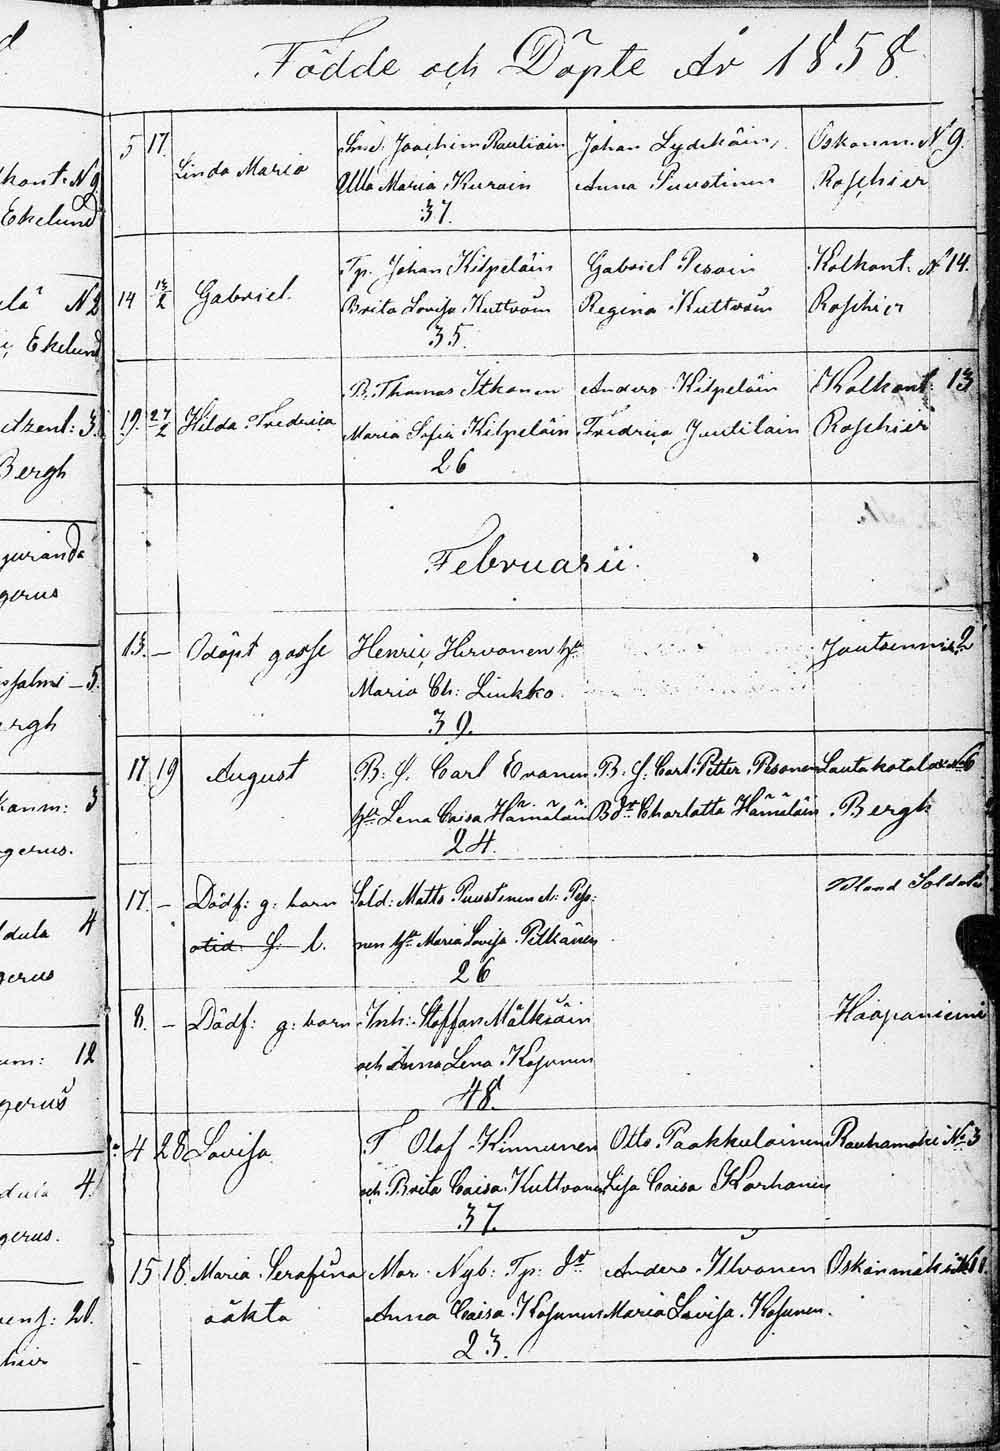 Födde och Döpte År 1858.
5 17. Linda Maria
Smed. Joachim Rautiain
Ulla Maria Kurain
37.
Johan Lydikäin,
Anna Puustinen
Oskanm. N 9.
Roschier
14 14/2 Gabriel.
Tp. Johan Kilpeläin
Brita Lovisa Kuttvain
35.
Gabriel Pesoin
Regina Kuttvain
Kolkont. N 14.
Roschier
19. 27/2 Hilda Fredrica
B. Thomas Itkonen
Maria Sofia Kilpeläin
26
Anders Kilpeläin
Fredrica Juutilain
Kolkont: 13
Roschier
Februarii.
13. — Odöpt gosse
Henric Hirvonen hu
Maria Ch: Linkko.
39.
Joutsenniemi 2
17 19 August
B: S. Carl Evanen
hu Lena Caisa Hämäläin
24.
B. S. Carl Petter Pesonen
B dr Charlotta Hämäläin
Lautakotalax No 6
Bergh
17. — Dödf: g: barn
Sold: Matts Puustinen
hu Maria Lovisa Pitkänen
26
Bland Soldater
8. — Dödf: g: barn
Inh: Staffan Mälkiäin
och Anna Lena Kosonen
48.
Haapaniemi
4 28 Lovisa
T Olof Kinnunen
och Brita Caisa Kuttvonen
37.
Otto Paakkulainen
Lisa Caisa Korhonen
Rauhamäki No 3
15 18 Maria Serafina
oäkta
Mor. Nyb: Tp: dr
Anna Caisa Kosunen
23.
Anders Ilvonen
Maria Lovisa Kosunen.
Oskarimäki N 11.
Ekelund
N 2
Ekelund
Bergh
gerus
5.
gerus.
4
12
gerus
4.
gerus.
20.